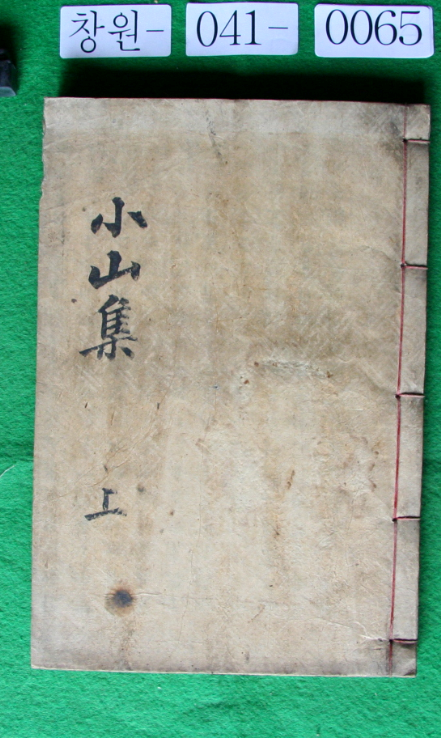 창원- 041- 0065
小山集 上